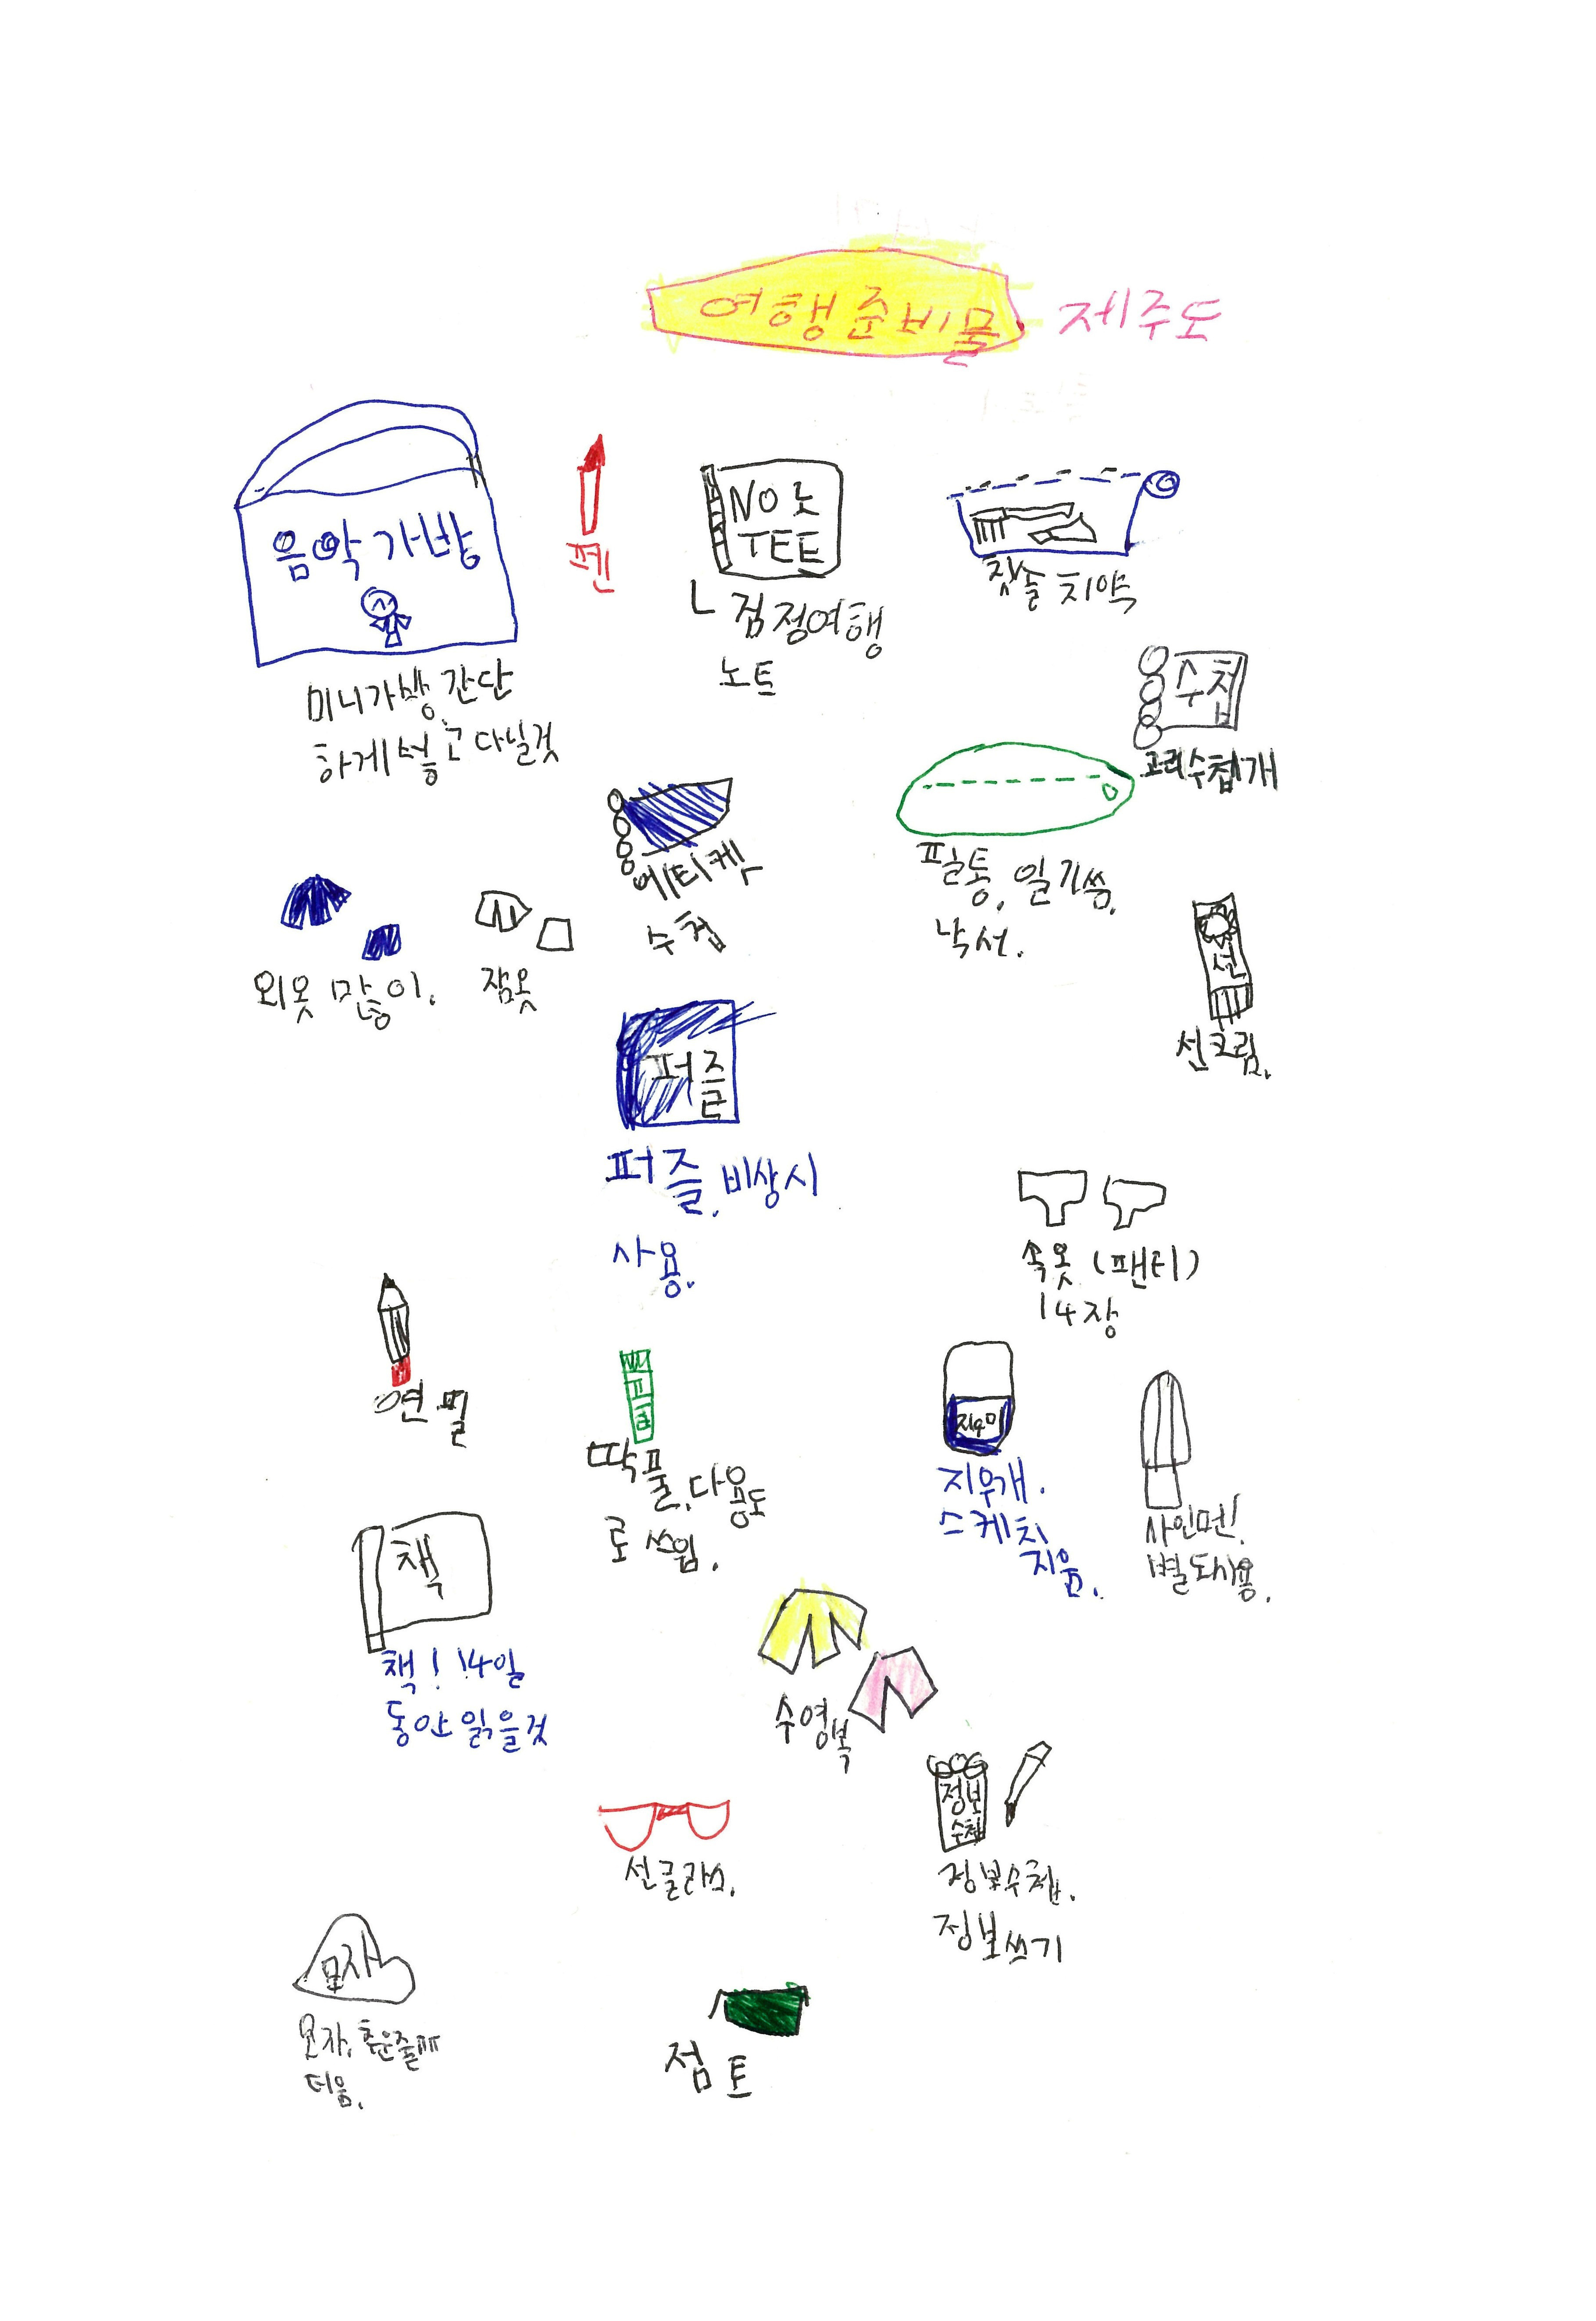 여행준비물 제주도
음악가방
미니가방 간단
하게 넣고 다닐것
펜
NO노
TEE
검정여행
노트
칫솔 치약
수첩
고리수첩1개
필통. 일기씀.
낙서.
에티켓
수첩
외옷 많이.
잠옷
선
선크림.
퍼즐
퍼즐. 비상시
사용.
속옷 (팬티)
14장
연필
풀
딱풀. 다용도
로 쓰임.
지우개.
스케치
지움.
사인펜!
별도사용.
책
책! 14일
동안 읽을것
수영복
선글라스.
정보
수첩
정보수첩.
정보쓰기
모자
모자.
더움.
점토